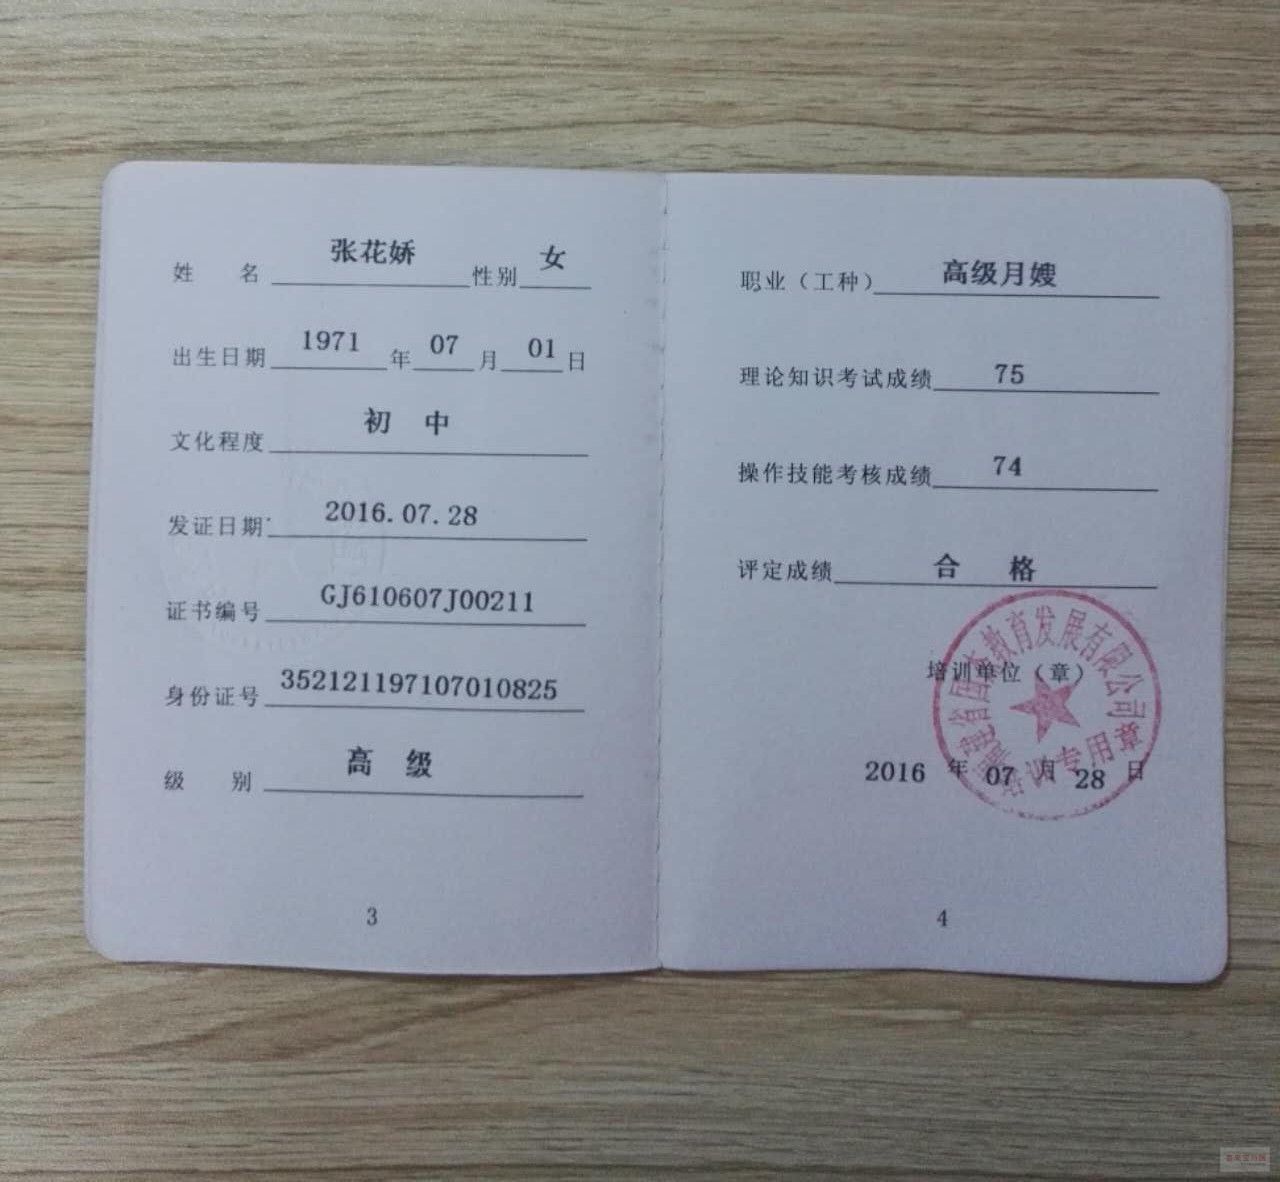 姓 名 张花娇 性别 女
出生日期 1971 年 07 月 01 日
文化程度 初 中
发证日期 2016.07.28
证书编号 GJ610607J00211
身份证号 352121197107010825
级 别 高 级
3
职业（工种） 高级月嫂
理论知识考试成绩 75
操作技能考核成绩 74
评定成绩 合 格
培训单位（章）
2016 年 07 月 28 日
福建省 教育发展有限公司
培训专用章
4